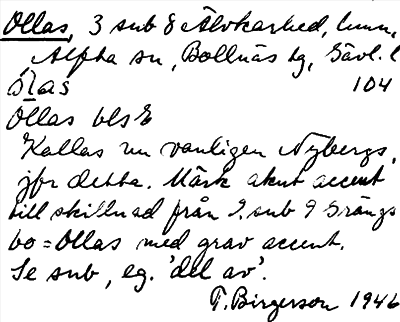 Ollas, 3 sub 8 Älvkarhed, hmn,
Alpha sn, Bollnäs tg, Gävl. l
ólas 104
Ollas bls
Kallas nu vanligen Nybergs,
jfr detta. Märk akut accent
till skillnad från 9. sub 9 Grängs
bo = Ollas med grav accent.
Se sub, eg. 'del av'.
T. Birgerson 1946